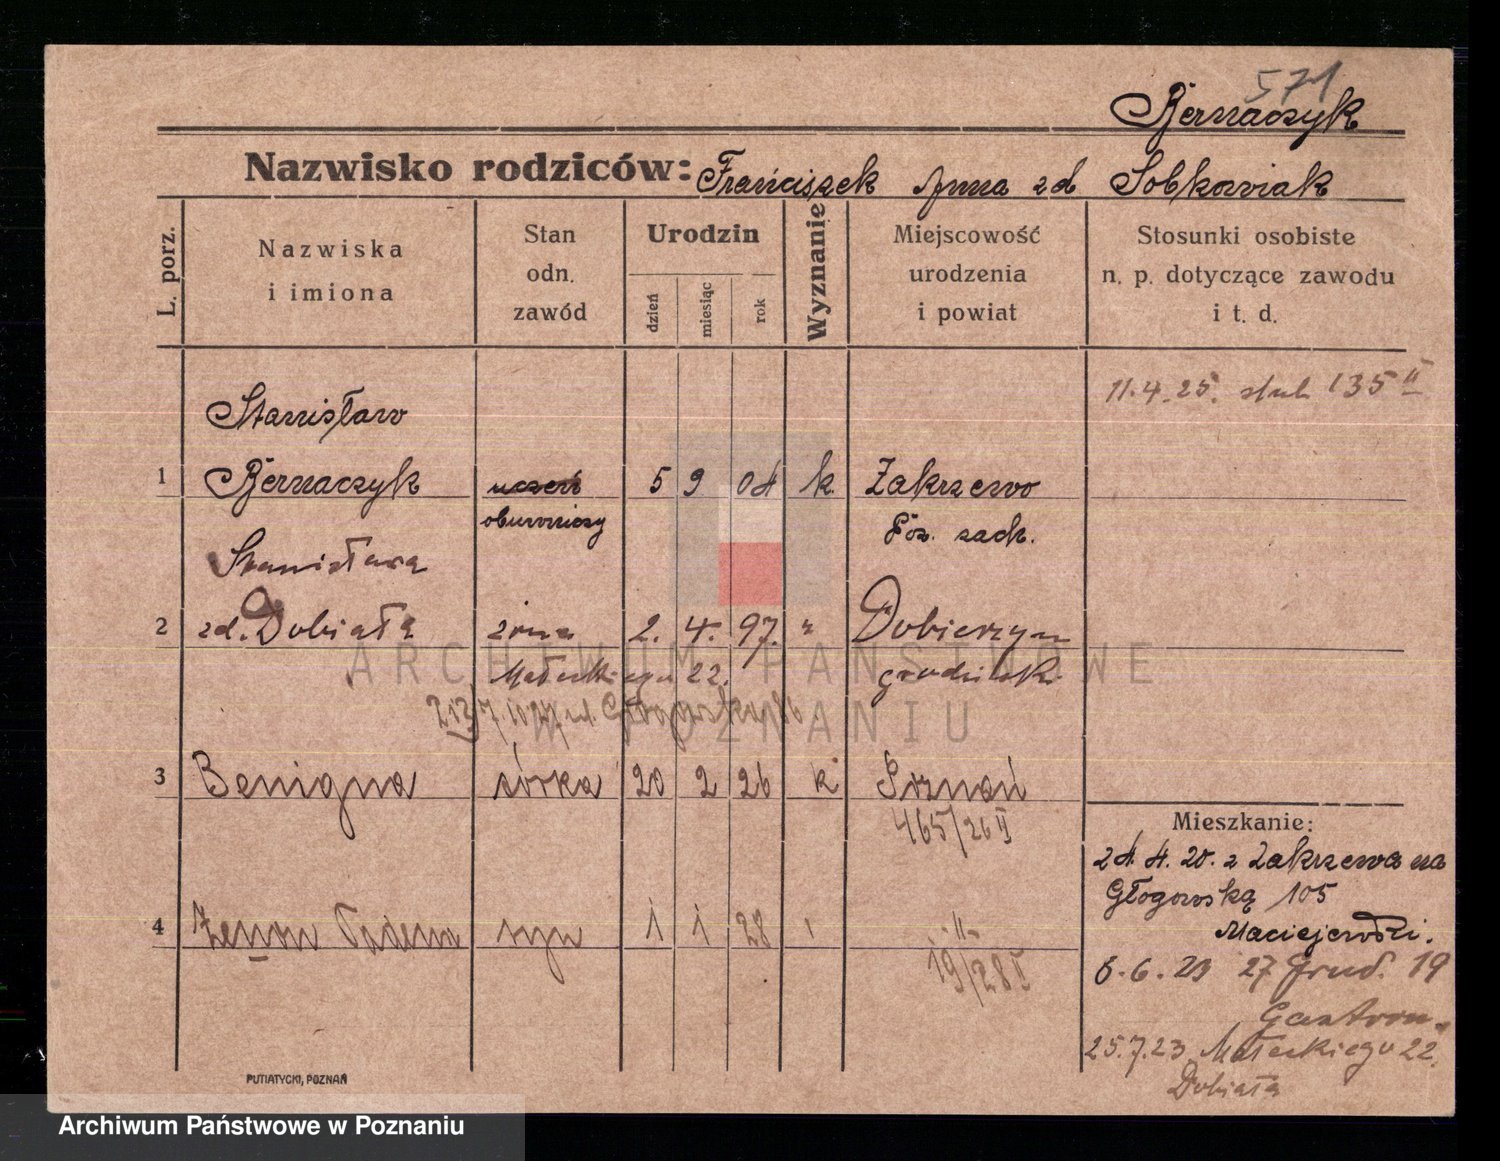 571
Bernaczyk
Nazwisko rodziców: Franciszek Anna zd Sobkowiak
L. porz.
Nazwiska
i imiona
Stan
odn.
zawód
Urodzin
dzień
miesiąc
rok
Wyznanie
Miejscowość
urodzenia
i powiat
Stosunki osobiste
n. p. dotyczące zawodu
i t. d.
11.4.25. ślub 135 II
Stanisław
1 Bernaczyk uczeń 5 9 04 k. Zakrzewo
obuwniczy Poz. zach.
Stanisława
2 zd. Dobiała żona 2. 4. 97. " Dobierzyn
Małeckiego 22. grodzisk
3 Benigna córka 20 2 26 k Poznań
465/26 II
4 Zenon syn 1 1 28
19/28 II
Mieszkanie:
24.4.20. z Zakrzewa na
Głogowską 105
Maciejewski.
6.6.23 27 Grud. 19
25.7.23 Małeckiego 22.
Dobiała
PUTIATYCKI, POZNAŃ
ARCHIWUM PAŃSTWOWE
W POZNANIU
Archiwum Państwowe w Poznaniu